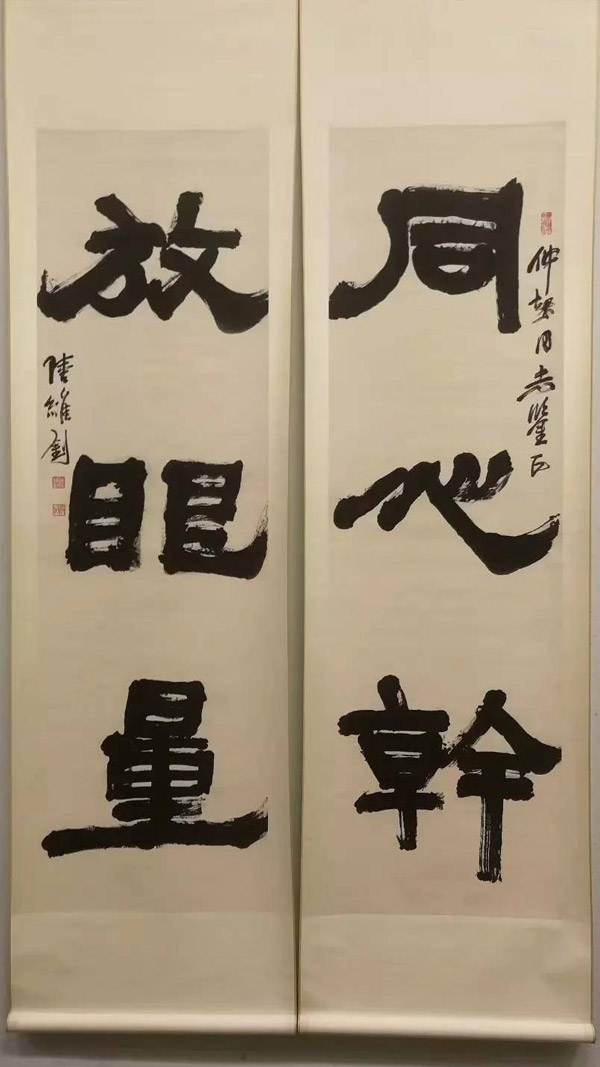 同心幹
仲琴同志鑒正
放眼量
陸維釗